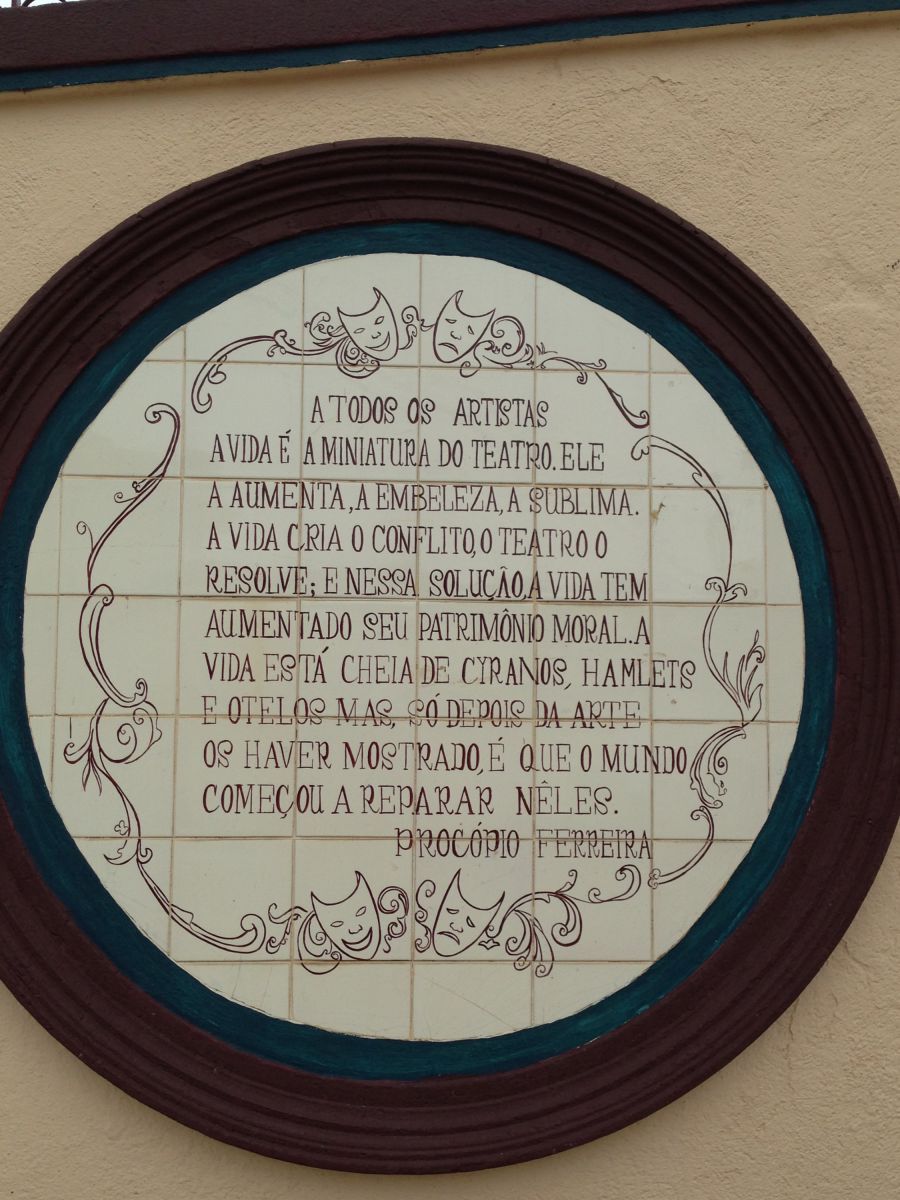 A TODOS OS ARTISTAS
A VIDA É A MINIATURA DO TEATRO. ELE
A AUMENTA, A EMBELEZA, A SUBLIMA.
A VIDA CRIA O CONFLITO, O TEATRO O
RESOLVE; E NESSA SOLUÇÃO, A VIDA TEM
AUMENTADO SEU PATRIMÔNIO MORAL. A
VIDA ESTÁ CHEIA DE CYRANOS, HAMLETS
E OTELOS MAS, SÓ DEPOIS DA ARTE
OS HAVER MOSTRADO, É QUE O MUNDO
COMEÇOU A REPARAR NÊLES.
PROCÓPIO FERREIRA